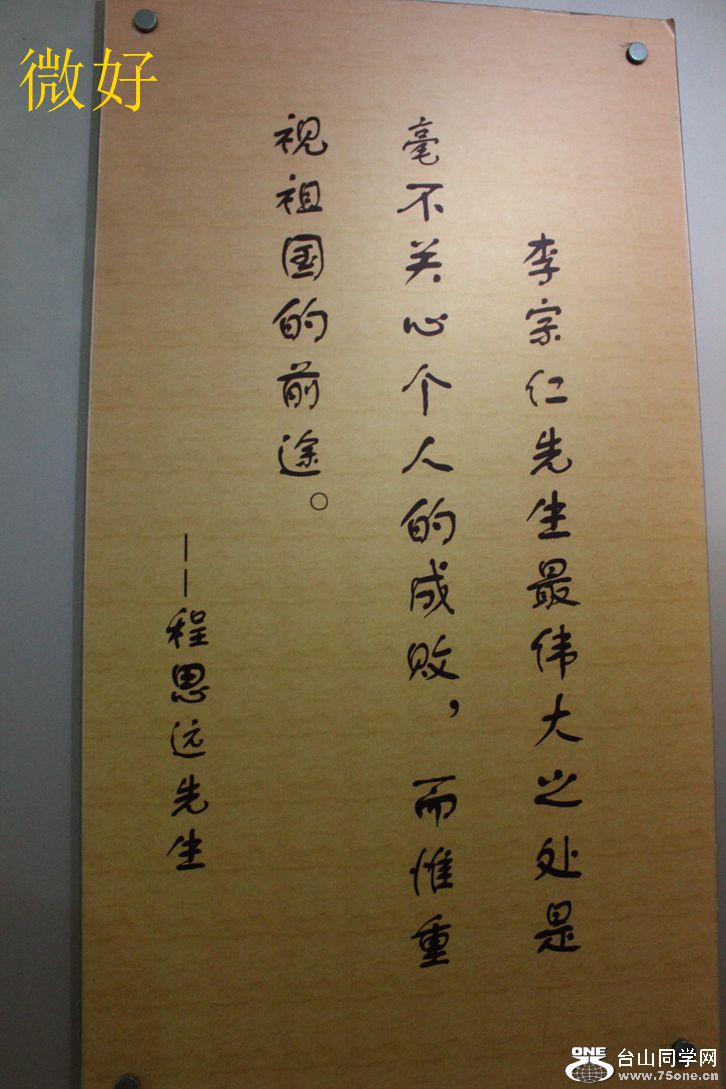 微好
李宗仁先生最伟大之处是
毫不关心个人的成败，而惟重
视祖国的前途。
——程思远先生
ONE
台山同学网
www.75one.cn